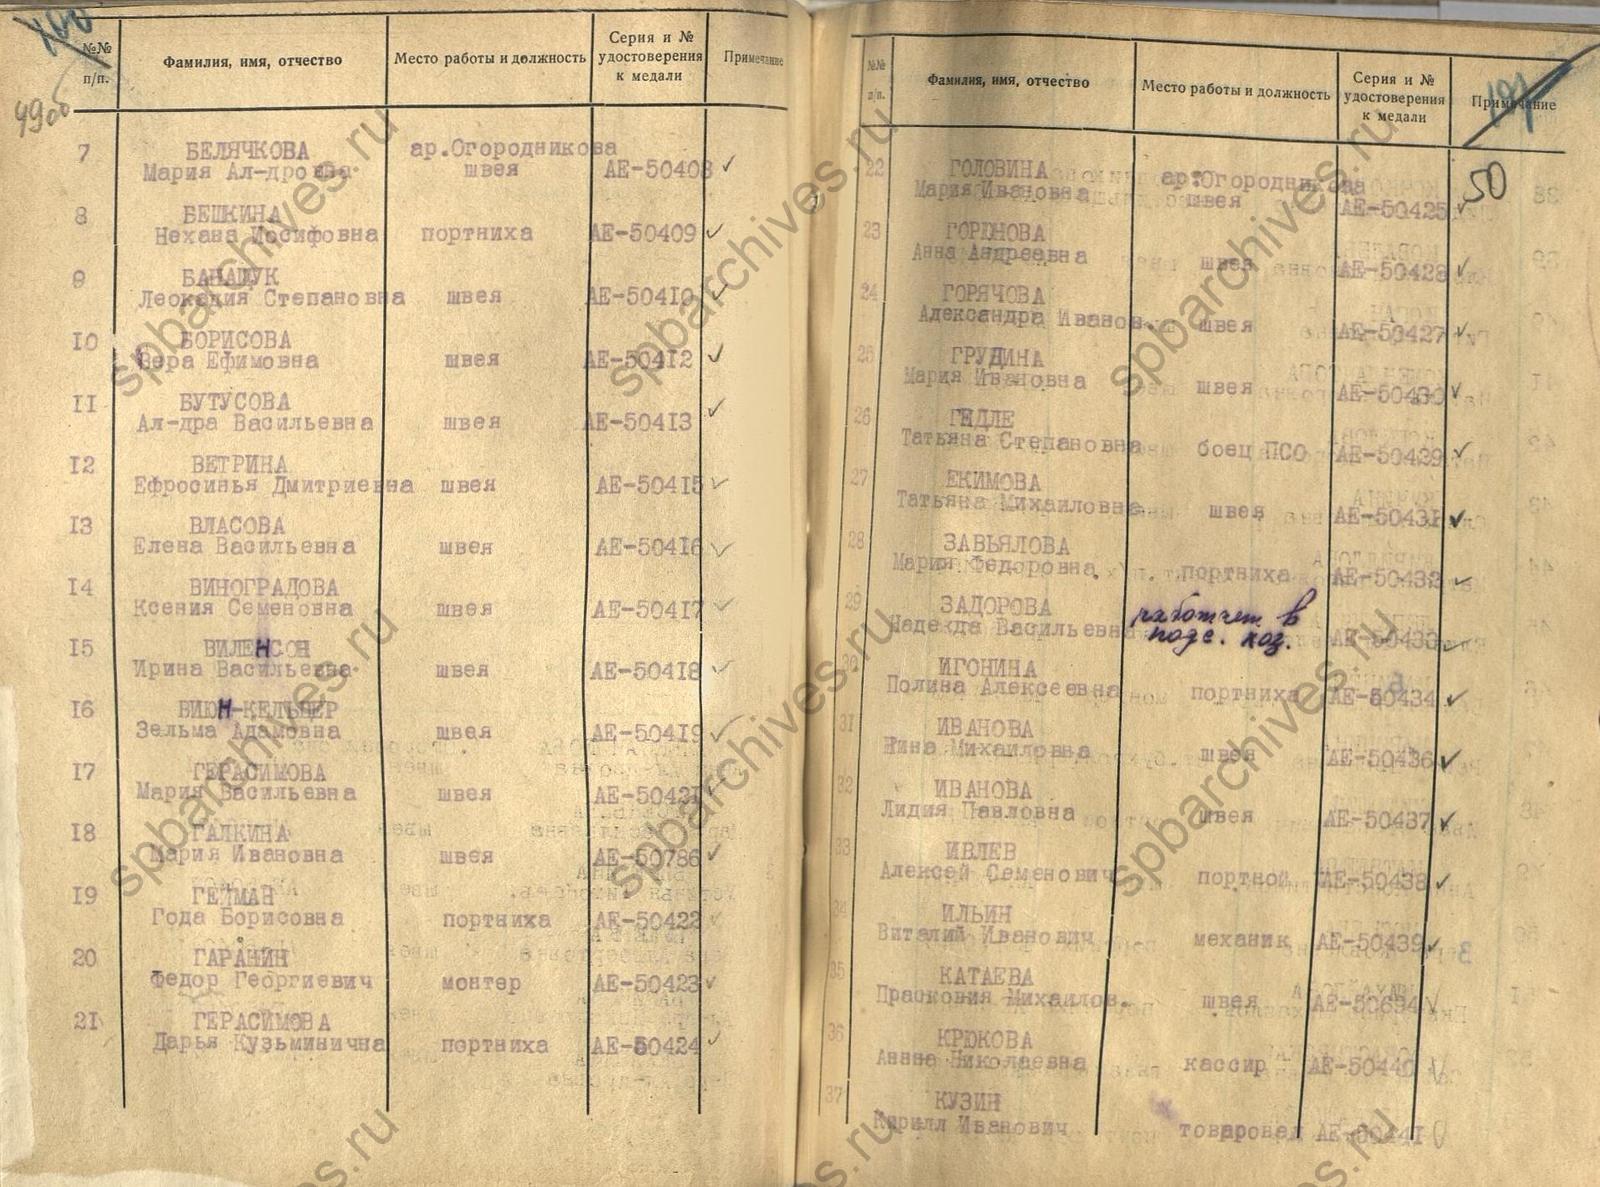 №№ п/п. Фамилия, имя, отчество Место работы и должность Серия и № удостоверения к медали Примечание
49об
7 БЕЛЯЧКОВА ар.Огородникова
Мария Ал-дровна швея АЕ-50408
8 БЕШКИНА
Нехана Иосифовна портниха АЕ-50409
9 БАНАЩУК
Леокадия Степановна швея АЕ-50410
10 БОРИСОВА
Вера Ефимовна швея АЕ-50412
11 БУТУСОВА
Ал-дра Васильевна швея АЕ-50413
12 ВЕТРИНА
Ефросинья Дмитриевна швея АЕ-50415
13 ВЛАСОВА
Елена Васильевна швея АЕ-50416
14 ВИНОГРАДОВА
Ксения Семеновна швея АЕ-50417
15 ВИЛЕНСОН
Ирина Васильевна швея АЕ-50418
16 ВИЮН-КЕЛЬНЕР
Зельма Адамовна швея АЕ-50419
17 ГЕРАСИМОВА
Мария Васильевна швея АЕ-50421
18 ГАЛКИНА
Мария Ивановна швея АЕ-50786
19 ГЕЙМАН
Года Борисовна портниха АЕ-50422
20 ГАРАНИН
Федор Георгиевич монтер АЕ-50423
21 ГЕРАСИМОВА
Дарья Кузьминична портниха АЕ-50424
№№ п/п. Фамилия, имя, отчество Место работы и должность Серия и № удостоверения к медали Примечание
50
22 ГОЛОВИНА ар.Огородникова
Мария Ивановна швея АЕ-50425
23 ГОРЮНОВА
Анна Андреевна швея АЕ-50428
24 ГОРЯЧОВА
Александра Иванов. швея АЕ-50427
25 ГРУДИНА
Мария Ивановна швея АЕ-50430
26 ГЕДЛЕ
Татьяна Степановна боец ПСО АЕ-50429
27 ЕКИМОВА
Татьяна Михайловна швея АЕ-50431
28 ЗАВЬЯЛОВА
Мария Федоровна портниха АЕ-50432
29 ЗАДОРОВА работает в
Надежда Васильевна подс. хоз. АЕ-50433
30 ИГОНИНА
Полина Алексеевна портниха АЕ-50434
31 ИВАНОВА
Нина Михайловна швея АЕ-50436
32 ИВАНОВА
Лидия Павловна швея АЕ-50437
33 ИВЛЕВ
Алексей Семенович портной АЕ-50438
34 ИЛЬИН
Виталий Иванович механик АЕ-50439
35 КАТАЕВА
Прасковия Михайлов. швея АЕ-50694
36 КРЮКОВА
Аннна Николаевна кассир АЕ-50440
37 КУЗИН
Кирилл Иванович товаровед АЕ-50441
spbarchives.ru